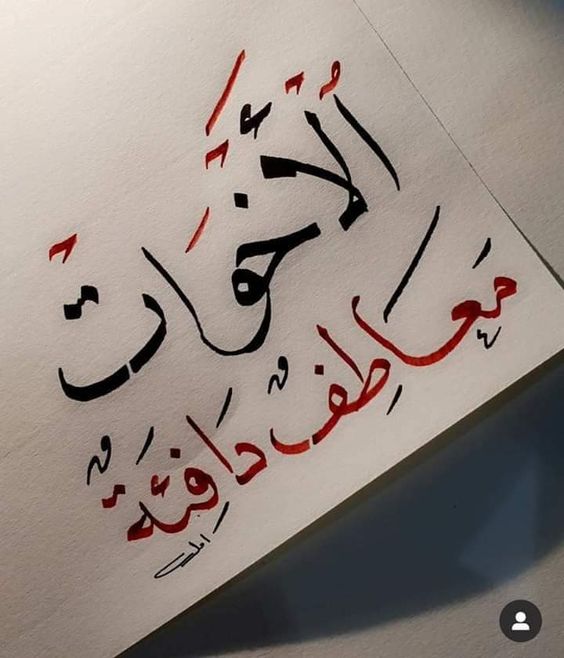 الأَخَوَاتُ
مَعَاطِفٌ دَافِئَةٌ